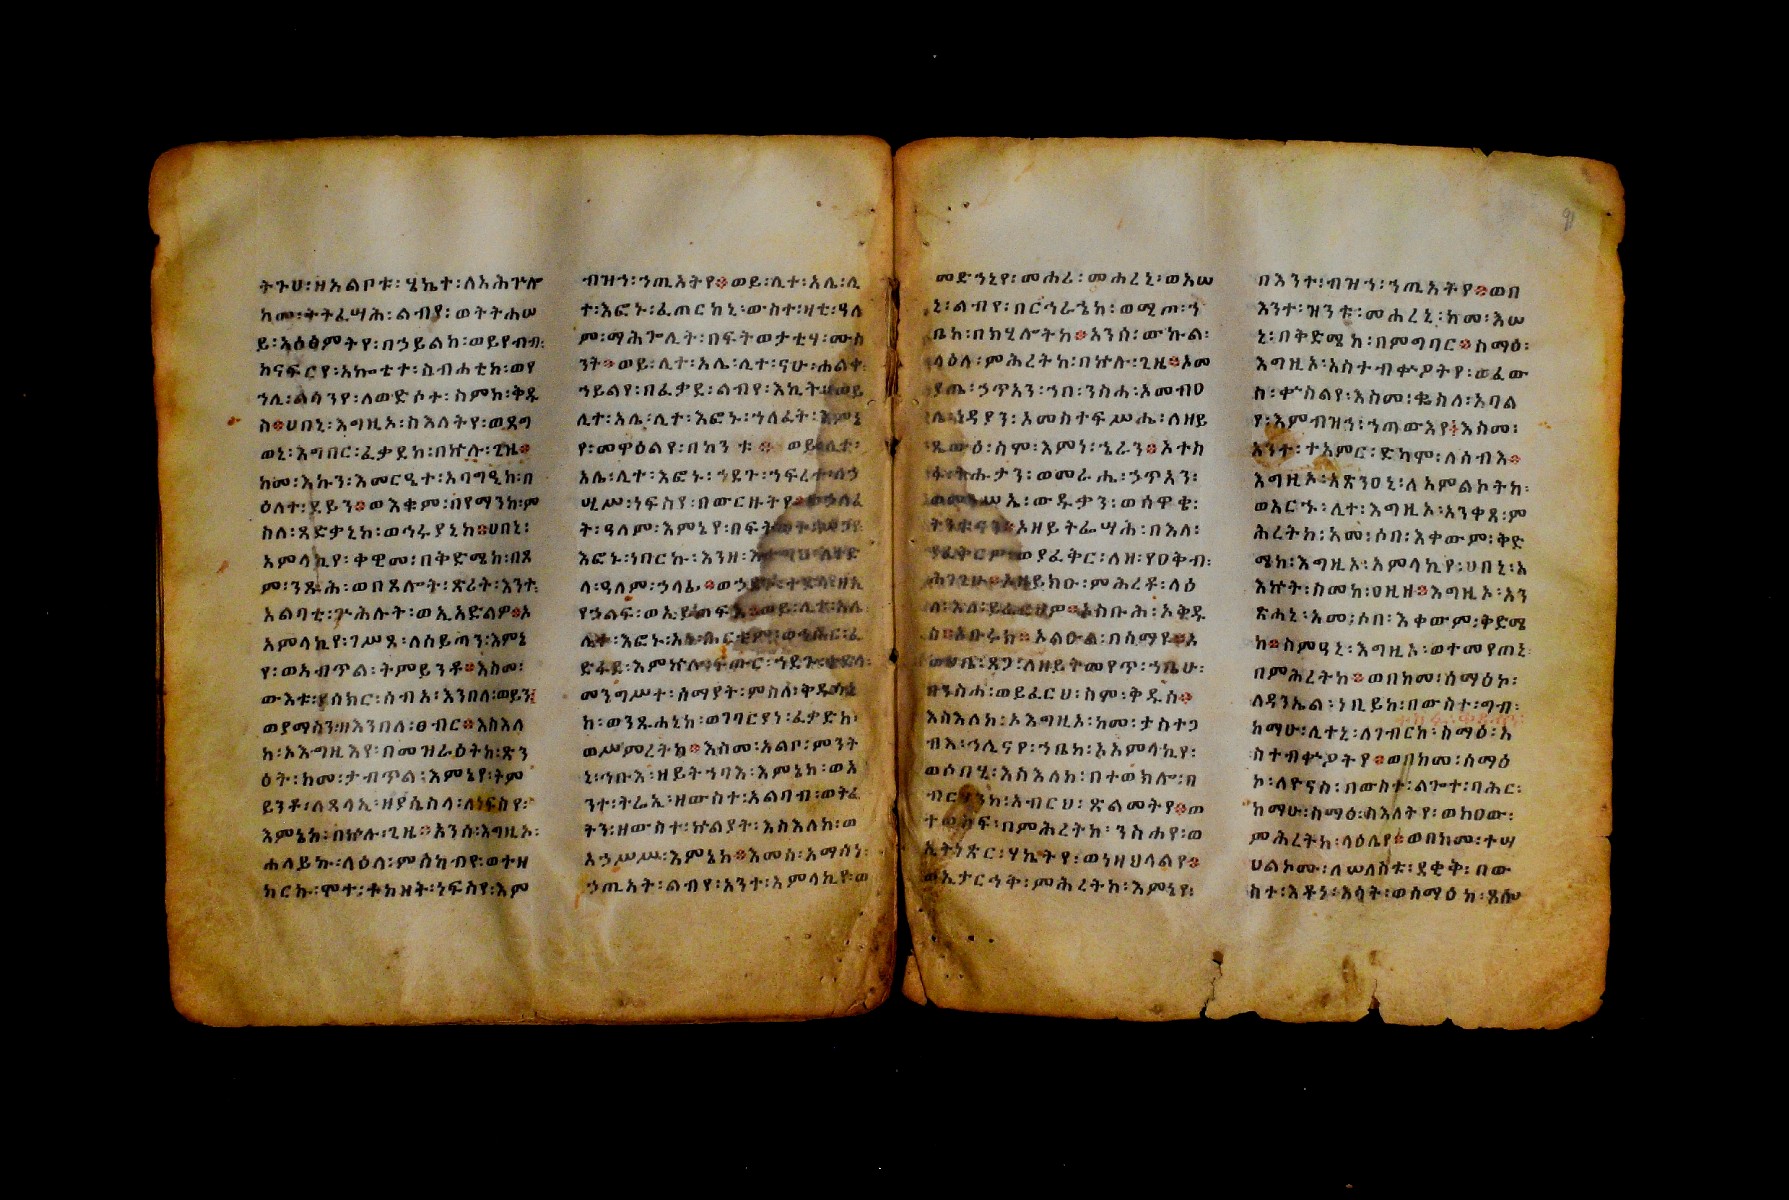 ትጉህ፡ዘአልቦቱ፡ሄኬተ፡ለአሕጕሎ
ከመ፡ትትፌሣሕ፡ልብየ፡ወትትሐሠ
ይ፡አዕፅምትየ፡በኃይልከ፡ወይየብብ፡
ከናፍርየ፡አኰቴተ፡ስብሐቲከ፡ወየ
ኀሊ፡ልሳንየ፡ለወድሶተ፡ስምከ፡ቅዱ
ስ፨ሀበኒ፡እግዚኦ፡ስእለትየ፡ወደግ
ወኒ፡እግበር፡ፈቃደከ፡በኵሉ፡ጊዜ፨
ከመ፡እኩን፡እመርዔተ፡አባግዒከ፡በ
ዕለተ፡ደይን፨ወእቁም፡በየማንከ፡ም
ስለ፡ጻድቃኒከ፡ወኅሩያኒከ፨ሀበኒ፡
አምላኪየ፡ቀዊመ፡በቅድሜከ፡በጾ
ም፡ንጹሕ፡ወበጸሎት፡ጽሪት፡እንተ፡
አልባቲ፡ጕሕሉት፡ወኢአድልዎ፨ኦ
አምላኪየ፡ገሥጾ፡ለሰይጣን፡እምኔ
የ፡ወአብጥል፡ትምይንቶ፨እስመ፡
ውእቱ፡ያሰክር፡ሰብአ፡እንበለ፡ወይን፤
ወያማስን፡ዘእንበለ፡ፀብር፨እስእለ
ከ፡ኦእግዚእየ፡በመዝራዕትከ፡ጽን
ዕት፡ከመ፡ታብጥል፡እምኔየ፡ትም
ይንቶ፡ለጸላኢ፡ዘያሴስላ፡ለነፍስየ፡
እምኔከ፡በኵሉ፡ጊዜ፨አንሰ፡እግዚኦ፡
ሐለይኩ፡ላዕለ፡ምስከብየ፡ወተዘ
ከርኩ፡ሞተ፡ቶከዘት፡ነፍስየ፡እም
ብዝኀ፡ኀጢአትየ፨ወይ፡ሊተ፡አሌ፡ሊ
ተ፡እፎኑ፡ፈጠርከኒ፡ውስተ፡ዛቲ፡ዓለ
ም፡ማሕጐሊት፡በፍትወታቲሃ፡ሙስ
ንት፨ወይ፡ሊተ፡አሌ፡ሊተ፡ናሁ፡ሐልቀ፡
ኀይልየ፡በፈቃደ፡ልብየ፡እኪት፨ወይ
ሊተ፡አሌ፡ሊተ፡እፎኑ፡ኀለፈት፡እምኔ
የ፡መዋዕልየ፡በከንቱ፨ወይ፡ሊተ፡
አሌ፡ሊተ፡እፎኑ፡ኀደጉ፡
ት፡ዓለም፡እምኔየ፡
እፎኑ፡ነበርኩ፡እንዘ፡
ላ፡ዓለም፡ኃላፊ፨
የኃልፍ፡
ሊተ፡እፎኑ፡
ድፋደ፡እምኵሉ፡
መንግሥተ፡ሰማያት፡ምስለ፡ቅዱሳኒ
ከ፡ወንጹሐኒከ፡ወገባርያነ፡ፈቃድከ፡
ወሥምረትከ፨እስመ፡አልቦ፡ምንት
ኒ፡ኅቡእ፡ዘይትኀባእ፡እምኔከ፡ወአ
ንተ፡ትሬኢ፡ዘውስተ፡አልባብ፡ወትፈ
ትን፡ዘውስተ፡ኵልያት፡እስእለከ፡ወ
አኃሥሥ፡እምኔከ፨እመሰ፡አማሰነ፡
ኃጢአት፡ልብየ፡አንተ፡አምላኪየ፡ወ
መድኃኒየ፡መሐሪ፡መሐረኒ፡ወአሠ
ኒ፡ልብየ፡በርኅራኄከ፡ወሚጦ፡ኀ
ቤከ፡በክሂሎትከ፨አንሰ፡ውኩል፡
ላዕለ፡ምሕረትከ፡በኵሉ፡ጊዜ፨ኦመ
ያጤ፡ኃጥአን፡ኀበ፡ንስሐ፡ኦመብዐ
ሌ፡ነዳያን፡ኦመስተፍሥሒ፡ለዘይ
ጼውዕ፡ስም፡እምነ፡ኄራን፨ኦተስ
ፋ፡ትሑታን፡ወመራሒ፡ኃጥአን፡
ውዱቃን፡ወሰዋቄ፡
ኦዘይትፌሣሕ፡በእለ፡
ወያፈቅር፡ለዘ፡የዐቅብ፡
ኦዘይክዑ፡ምሕረቶ፡ላዕ
ለ፡እለ፡ይፈርህዎ፨ኦስቡሕ፡ኦቅዱ
ስ፨ኦቡሩክ፨ኦልዑል፡በሰማየ፨ኦ
ጸጋ፡ለዘይትመየጥ፡ኀቤሁ፡
በንስሐ፡ወይፈርህ፡ስም፡ቅዱስ፨
እስእለከ፡ኦእግዚኦ፡ከመ፡ታስተጋ
ብእ፡ኅሊናየ፡ኀቤከ፡ኦአምላኪየ፡
ወሶበሂ፡እስእለከ፡በተወክሎ፡በ
ብርሃንከ፡አብርህ፡ጽልመትየ፨ወ
ተወከፍ፡በምሕረትከ፡ንስሐየ፡ወ
ኢትነጽር፡ሃኬትየ፡ወነዘህላልየ፨
ወኢታርኅቅ፡ምሕረትከ፡እምኔየ፡
በእንተ፡ብዝኀ፡ኀጢአትየ፨ወበ
እንተ፡ዝንቱ፡መሐረኒ፡ከመ፡እሠ
ኒ፡በቅድሜከ፡በምግባር፨ስማዕ፡
እግዚኦ፡አስተብቍዖትየ፡ወፈው
ስ፡ቍስልየ፡እስመ፡ቈስለ፡አባል
የ፡እምብዝኀ፡ኀጣውእየ፤እስመ፡
አንተ፡ተአምር፡ድካሞ፡ለሰብእ፨
እግዚኦ፡አጽንዐኒ፡ለአምልኮትከ፡
ወአርኁ፡ሊተ፡እግዚኦ፡አንቀጸ፡ም
ሕረትከ፡አመ፡ሶበ፡እቀውም፡ቅድ
ሜከ፡እግዚኦ፡አምላኪየ፡ሀበኒ፡አ
እኵት፡ስመከ፡ዐዚዘ፨እግዚኦ፡አን
ጽሐኒ፡አመ፡ሶበ፡እቀውም፡ቅድሜ
ከ፨ስምዓኒ፡እግዚኦ፡ወተመየጠኒ፡
በምሕረትከ፨ወበከመ፡ሰማዕኮ፡
ለዳንኤል፡ነቢይከ፡በውስተ፡ግብ፡
ከማሁ፡ሊተኒ፡ለገብርከ፡ስማዕ፡አ
ስተብቍዖትየ፨ወበከመ፡ሰማዕ
ኮ፡ለዮናስ፡በውስተ፡ልጐተ፡ባሕር፡
ከማሁ፡ስማዕ፡ስእለትየ፡ወከዐው፡
ምሕረትከ፡ላዕሌየ፨ወበከመ፡ተሣ
ሀልኮሙ፡ለሠለስቱ፡ደቂቅ፡በው
ስተ፡እቶነ፡እሳት፡ወሰማዕከ፡ጸሎ